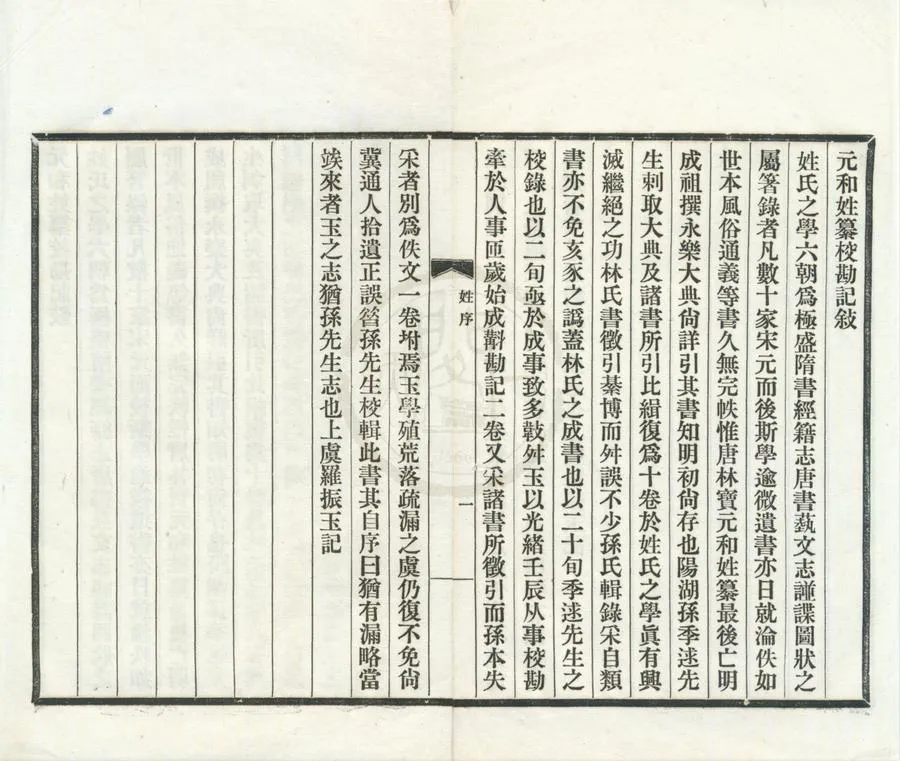 元和姓纂校勘記敍
姓氏之學六朝爲極盛隋書經籍志唐書蓺文志譜諜圖狀之
屬箸錄者凡數十家宋元而後斯學逾微遺書亦日就淪佚如
世本風俗通義等書久無完帙惟唐林寶元和姓纂最後亡明
成祖撰永樂大典尙詳引其書知明初尙存也陽湖孫季逑先
生刺取大典及諸書所引比緝復爲十卷於姓氏之學眞有興
滅繼絕之功林氏書徵引綦博而舛誤不少孫氏輯錄采自類
書亦不免亥豕之譌蓋林氏之成書也以二十旬季逑先生之
校錄也以二旬亟於成事致多敧舛玉以光緒壬辰从事校勘
牽於人事匝歲始成斠勘記二卷又采諸書所徵引而孫本失
姓序
一
采者別爲佚文一卷坿焉玉學殖荒落疏漏之虞仍復不免尙
冀通人拾遺正誤昝孫先生校輯此書其自序曰猶有漏略當
竢來者玉之志猶孫先生志也上虞羅振玉記